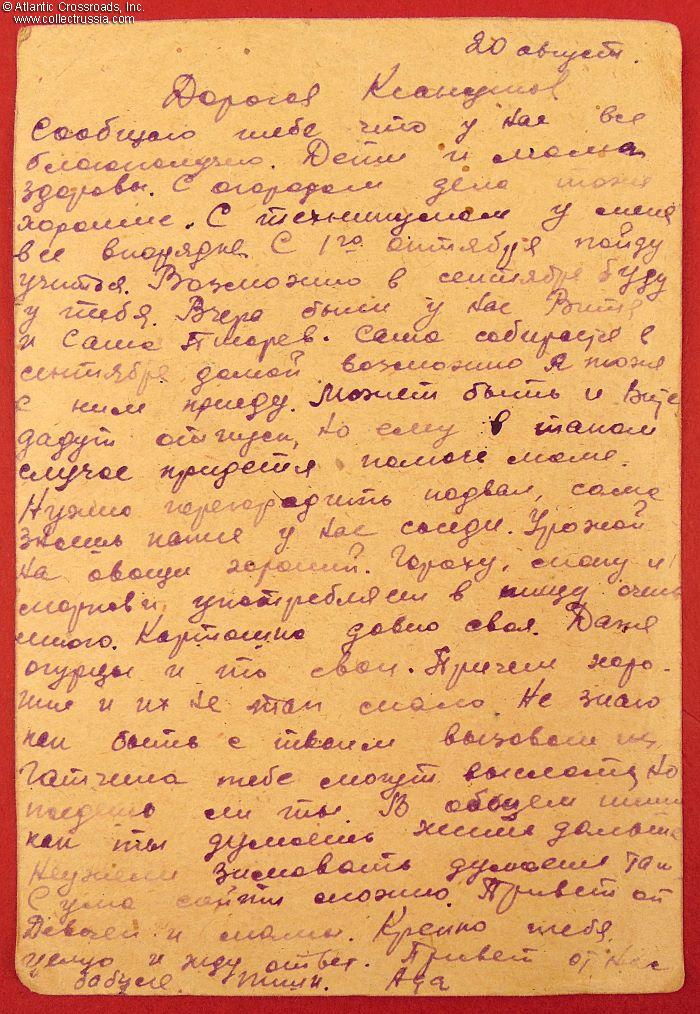 © Atlantic Crossroads, Inc.
www.collectrussia.com
20 август.
Дорогая
Сообщаю тебе что у нас все
благополучно. Дети и мама
здоровы. С огородом дела тоже
хорошие. С техникумом у меня
все впорядке. С 1го октября пойду
учиться. Возможно в сентябре буду
у тебя. Вчера были у нас Витя
и Саша Саша собирается в
сентябре домой возможно я тоже
с ним приеду. Может быть и Вите
дадут отпуск, но ему в таком
случае придется помочь маме.
Нужно перегородить подвал, сама
знаешь какие у нас соседи. Урожай
на овощи хороший. Гороху, и
моркови употребляем в пищу очень
много. Картошка давно своя. Даже
огурцы и то свои. Причем хоро-
шие и их не так мало. Не знаю
как быть с твоим вызовом из
Гатчина тебе могут выслать, но
поедешь ли ты. В общем пиши
как ты думаешь жить дальше
Неужели зимовать думаешь там
С ума сойти можно. Привет от
Девочек и мамы. Крепко тебя
целую и жду ответ. Привет от нас
бабусе. Пиши.